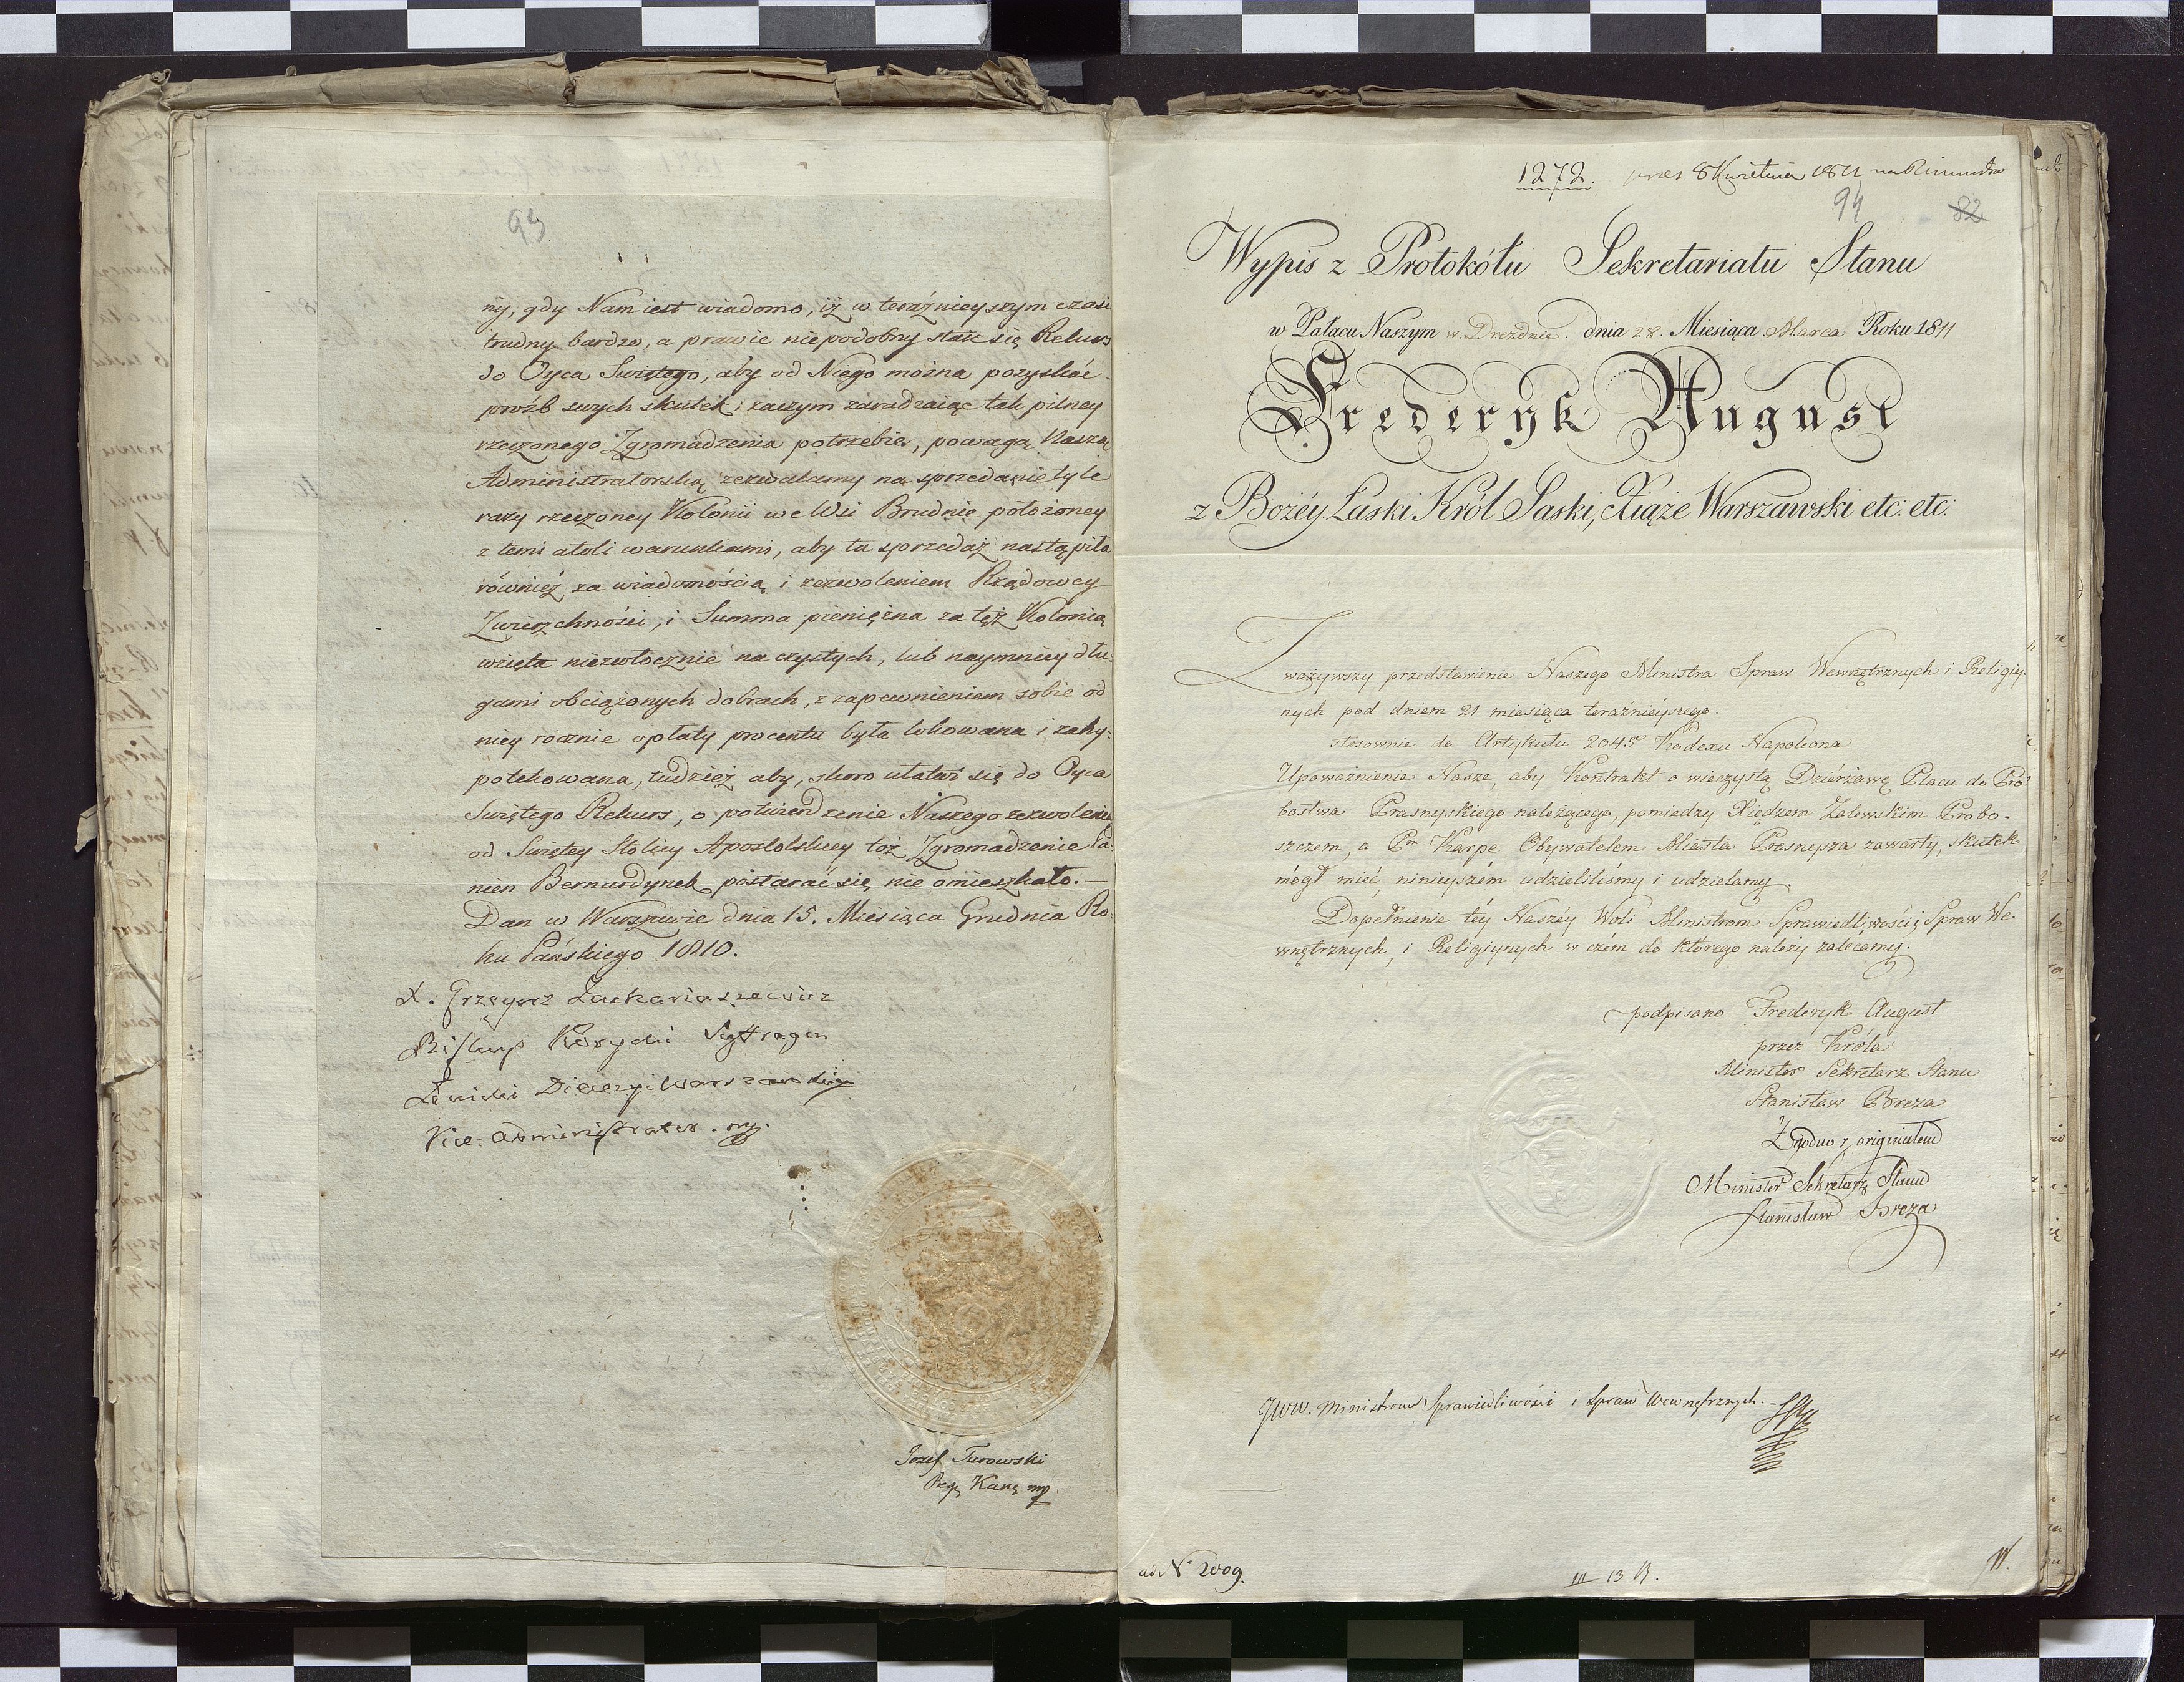 93
ny, gdy Nam iest wiadomo, iż w teraźnieyszym czasie
trudny bardzo, a prawie niepodobny staie się Rekurs
do Oyca Swiętego, aby od Niego można pozyskać
proźb swych skutek; zaczym zaradzaiąc tak pilney
rzeczonego Zgromadzenia potrzebie, powagą Naszą
Administratorską zezwalamy na sprzedanie tyle
razy rzeczoney Kolonii we Wsi Brudnie położoney
z temi atoli warunkami, aby ta sprzedaż nastąpiła
również za wiadomością i zezwoleniem Rządowey
Zwierzchności, i Summa pieniężna za tęż Kolonią
wzięta niezwłocznie na czystych, lub naymniey dłu:
gami obciążonych dobrach, z zapewnieniem sobie od
niey rocznie opłaty procentu była lokowana i zahy:
potekowana, tudzież aby, skoro ułatwi się do Oyca
Swiętego Rekurs, o potwierdzenie Naszego zezwolenia
od Swiętey Stolicy Apostolskiey toż Zgromadzenie Pa:
nien Bernardynek postarać się nie omieszkało.—
Dan w Warszawie dnia 15. Miesiąca Grudnia Ro:
ku Pańskiego 1810.
X. Grzegorz Zachariaszewicz
Biskup Korycki Suffragan
Łowicki Diecezyi Warszawskiey
Vice-Administrator. mp.
Jozef Turowski
mp
1272. przez 8 Kwietnia 1811
94 82
Wypis z Protokółu Sekretariatu Stanu
w Pałacu Naszym w Dreźdnie dnia 28. Miesiąca Marca Roku 1811
Frederyk August
z Bożéy Łaski Król Saski, Xiąże Warszawski etc: etc:
Zważywszy przedstawienie Naszego Ministra Spraw Wewnętrznych i Religiy-
nych pod dniem 21 miesiąca teraźnieyszego.
stosownie do Artykułu 2045 Kodexu Napoleona
Upoważnienie Nasze, aby Kontrakt o wieczystą Dzierżawę Placu do Pro-
bostwa Prasnyskiego należącego, pomiedzy Xiędzem Zalewskim Probo-
szczem, a Pm Karpe Obywatelem Miasta Prasnysza zawarty, skutek
mógł mieć, ninieyszém udzieliliśmy i udzielamy.
Dopełnienie téy Naszéy Woli Ministrom Sprawiedliwości i Spraw We-
wnętrznych, i Religiynych w czém do którego należy zalécamy.
podpisano Frederyk August
przez Króla
Minister Sekretarz Stanu
Stanisław Breza
Zgodno z originałem
Minister Sekretarz Stanu
Stanisław Breza
JWW. Ministrom Sprawiedliwości i Spraw Wewnętrznych.
ad N 2009.
III 13 B.